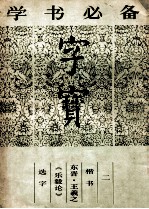 学书必备
字宝
二
楷书
东晋·王羲之
《乐毅论》
选字